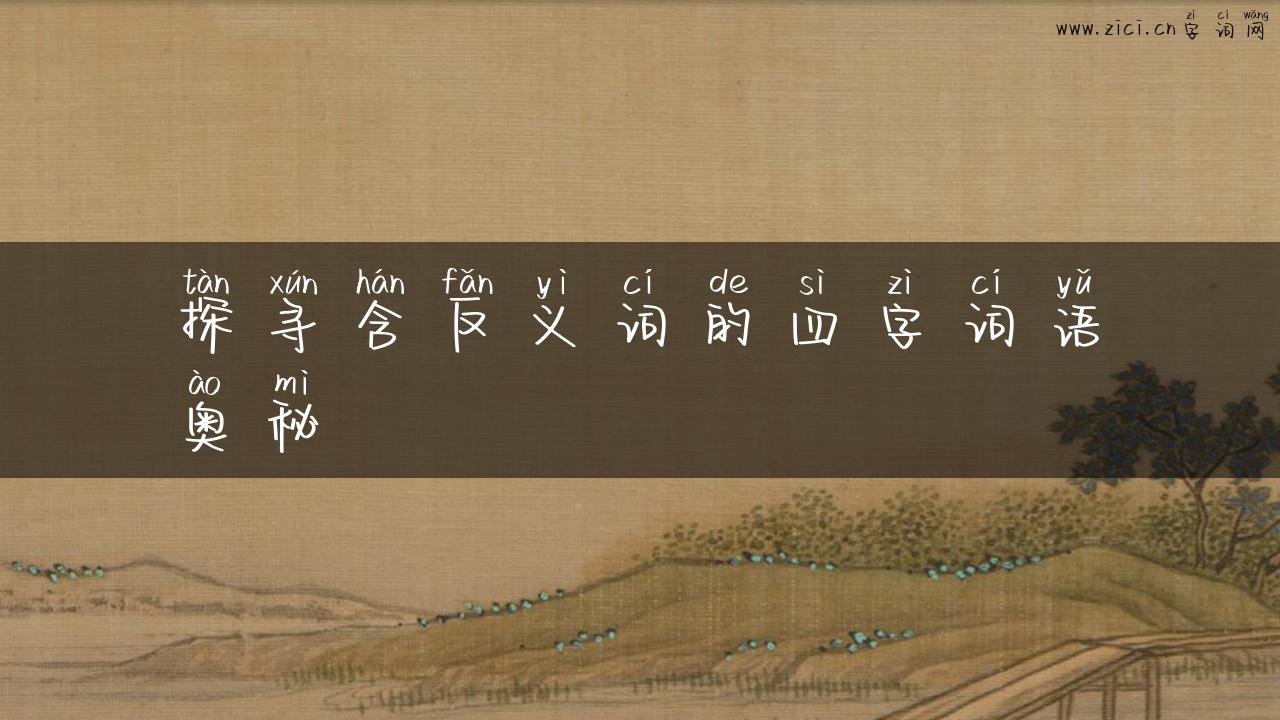 zì cí wǎng
www.zici.cn字词网
tàn xún hán fǎn yì cí de sì zì cí yǔ
探寻含反义词的四字词语
ào mì
奥秘